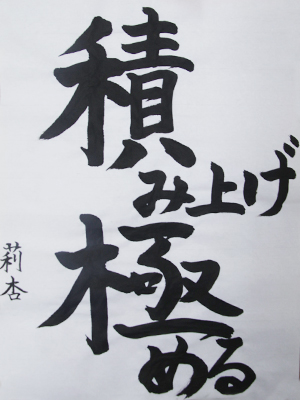 積み上げ
極める
莉杏